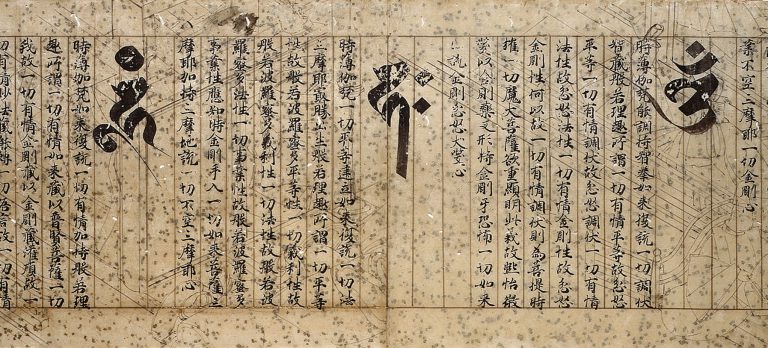 業不空三摩耶一切金剛心
時薄伽梵能調持智拳如來復說一切調伏
智藏般若理趣所謂一切有情平等故忿怒
平等一切有情調伏故忿怒調伏一切有情
法性故忿怒法性一切有情金剛性故忿怒
金剛性何以故一切有情調伏則為菩提時
摧一切魔大菩薩欲重顯明此義故熙怡微
笑以金剛藥叉形持金剛牙恐怖一切如來
已說金剛忿怒大笑心
時薄伽梵一切平等建立如來復說一切法
三摩耶最勝出生般若理趣所謂一切平等
性故般若波羅蜜多平等性一切義利性故
般若波羅蜜多義利性一切法性故般若波
羅蜜多法性一切事業性故般若波羅蜜多
事業性應知時金剛手入一切如來菩薩三
摩耶加持三摩地說一切不空三摩耶心
時薄伽梵如來復說一切有情加持般若理
趣所謂一切有情如來藏以普賢菩薩一切
我故一切有情金剛藏以金剛藏灌頂故一
切有情妙法藏能轉一切語言故一切有情